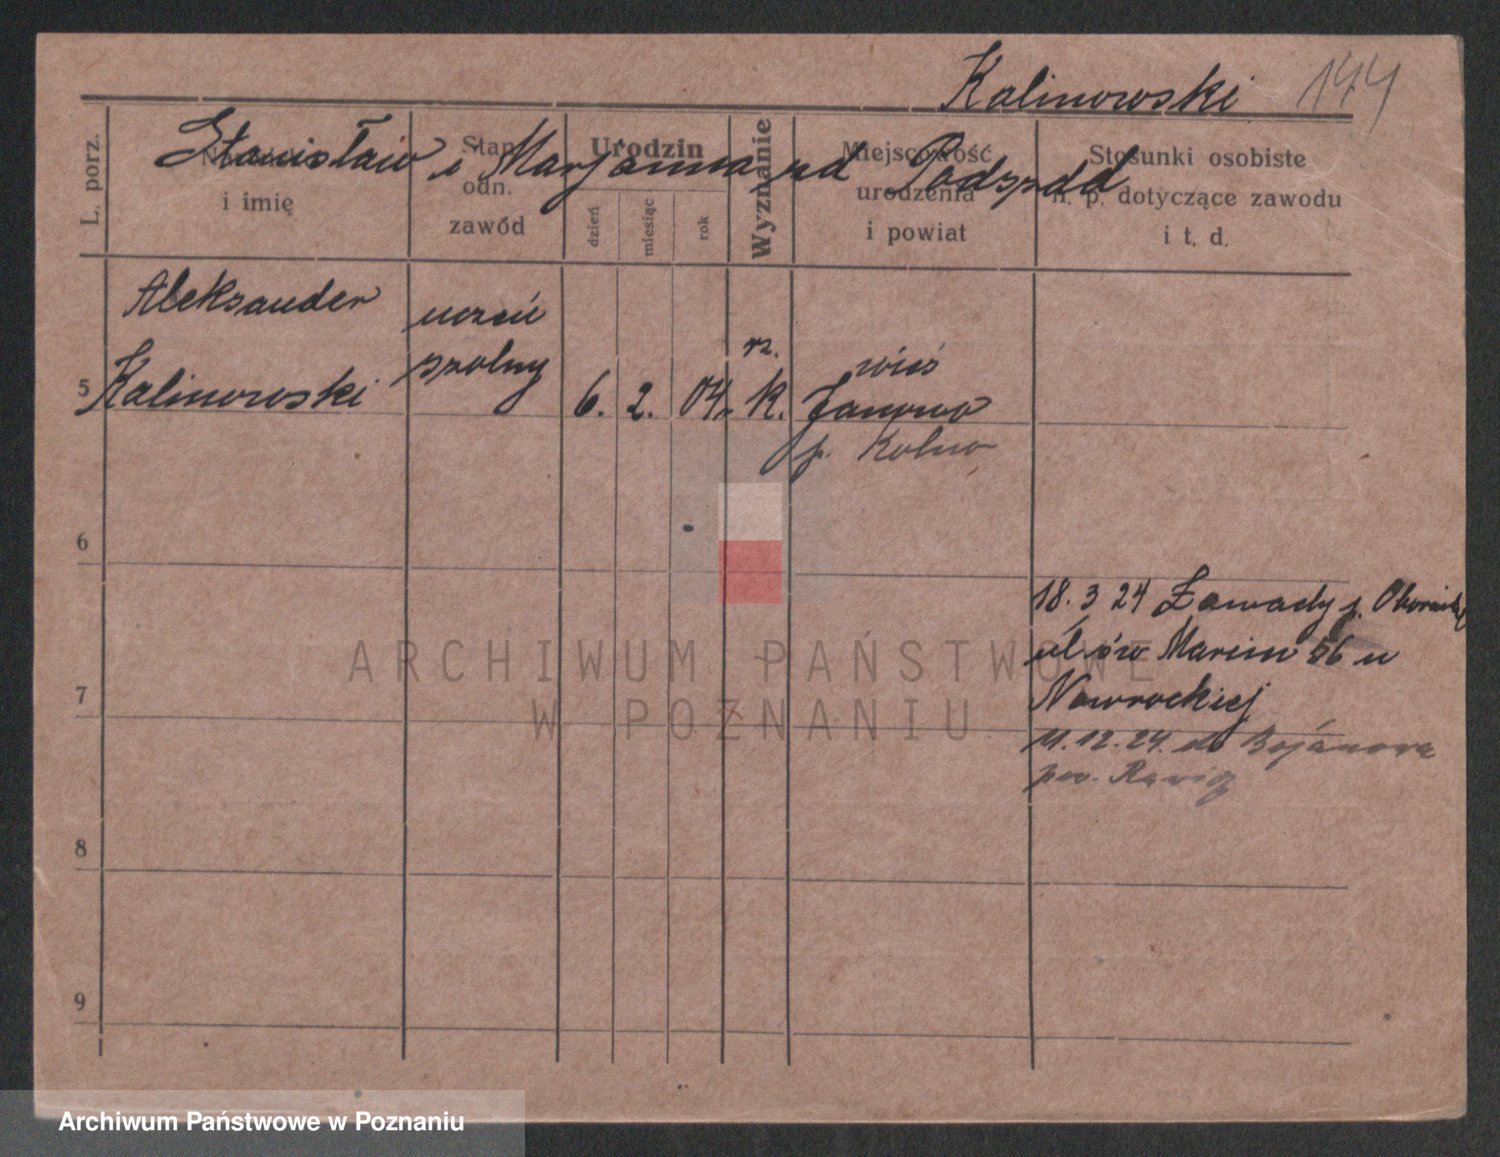 Kalinowski 144
Stanisław i Marjanna zd
L. porz.
i imię
Stan
odn.
zawód
Urodzin
dzień
miesiąc
rok
Wyznanie
Miejscowość
urodzenia
i powiat
Stosunki osobiste
n. p. dotyczące zawodu
i t. d.
Aleksander
Kalinowski
uczeń
szkolny
5
6. 2. 04.
rz.
K.
wieś
Janowo
p. Kolno
6
18. 3 24 Zawady p.
ul św Marcin 56 u
Nawrockiej
7
11.12.24. do Bojanowa
pow. Rawicz
8
9
ARCHIWUM PAŃSTWOWE
W POZNANIU
Archiwum Państwowe w Poznaniu